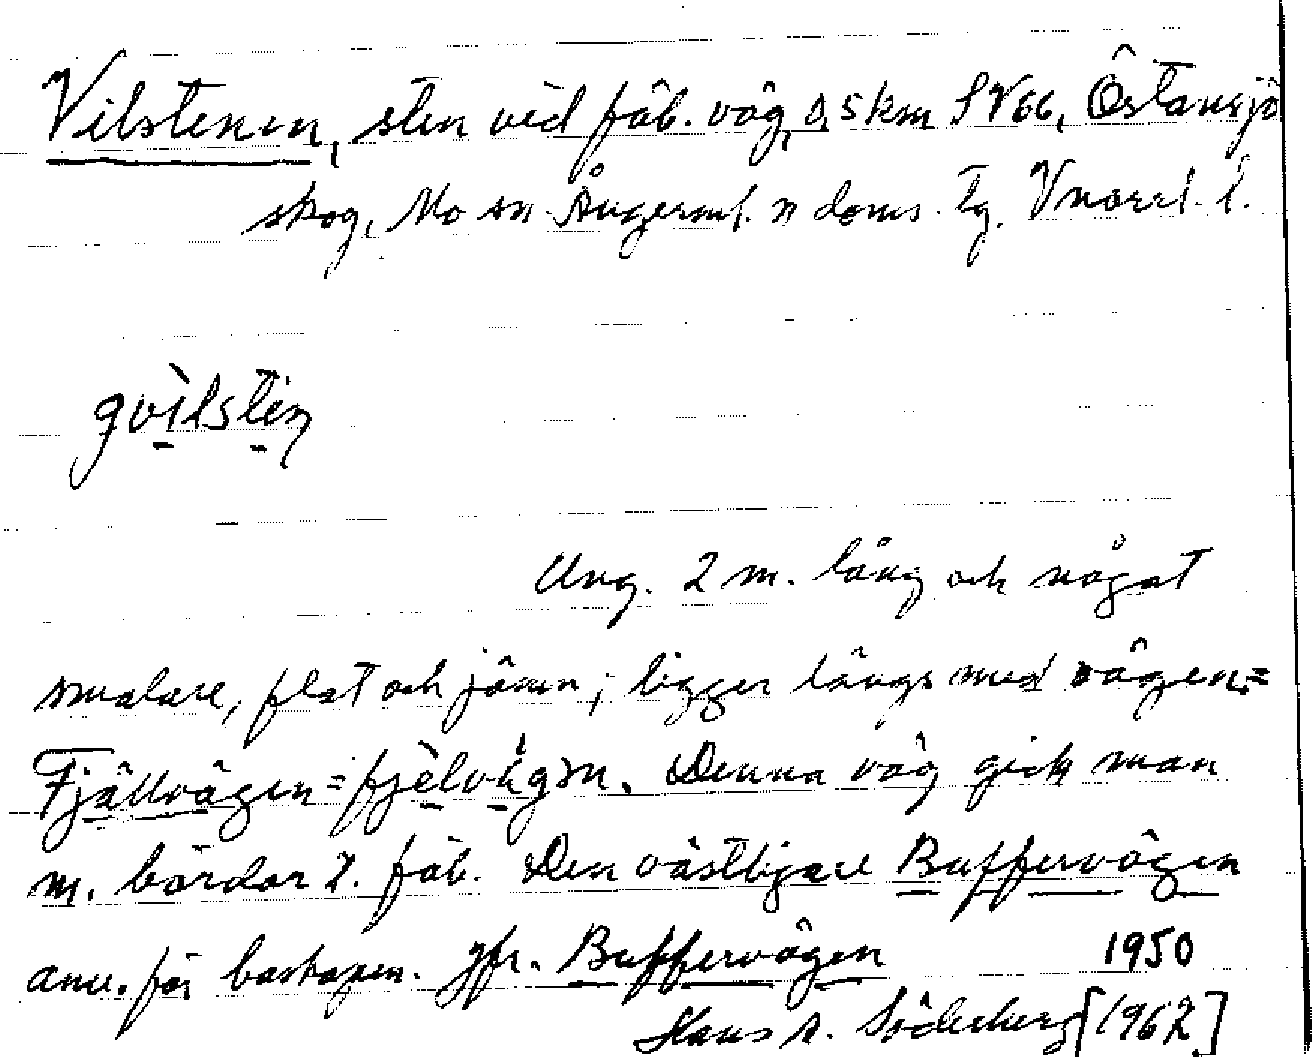 Vilstenen, sten vid fäb. väg, 0,5 km SV 66, Östansjö
skog, Mo sn. Ångerml. n doms. tg. Vnorrl. l.
gvìlstin
Ung. 2 m. lång och något
smalare, flat och jämn; ligger längs med vägen =
Fjällvägen = fjèlvägɜn. Denna väg gick man
m. bördor t. fäb. Den västligare Buffervägen
anv. för boskapen. Jfr. Buffervägen 1950
Hans A. Söderberg [1962]